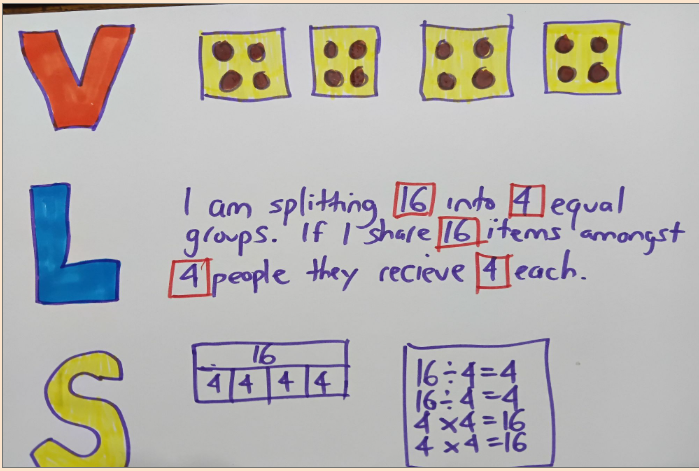 V
L
I am splitting 16 into 4 equal
groups. If I share 16 items amongst
4 people they recieve 4 each.
S
16
4 4 4 4
16÷4=4
16÷4=4
4×4=16
4×4=16